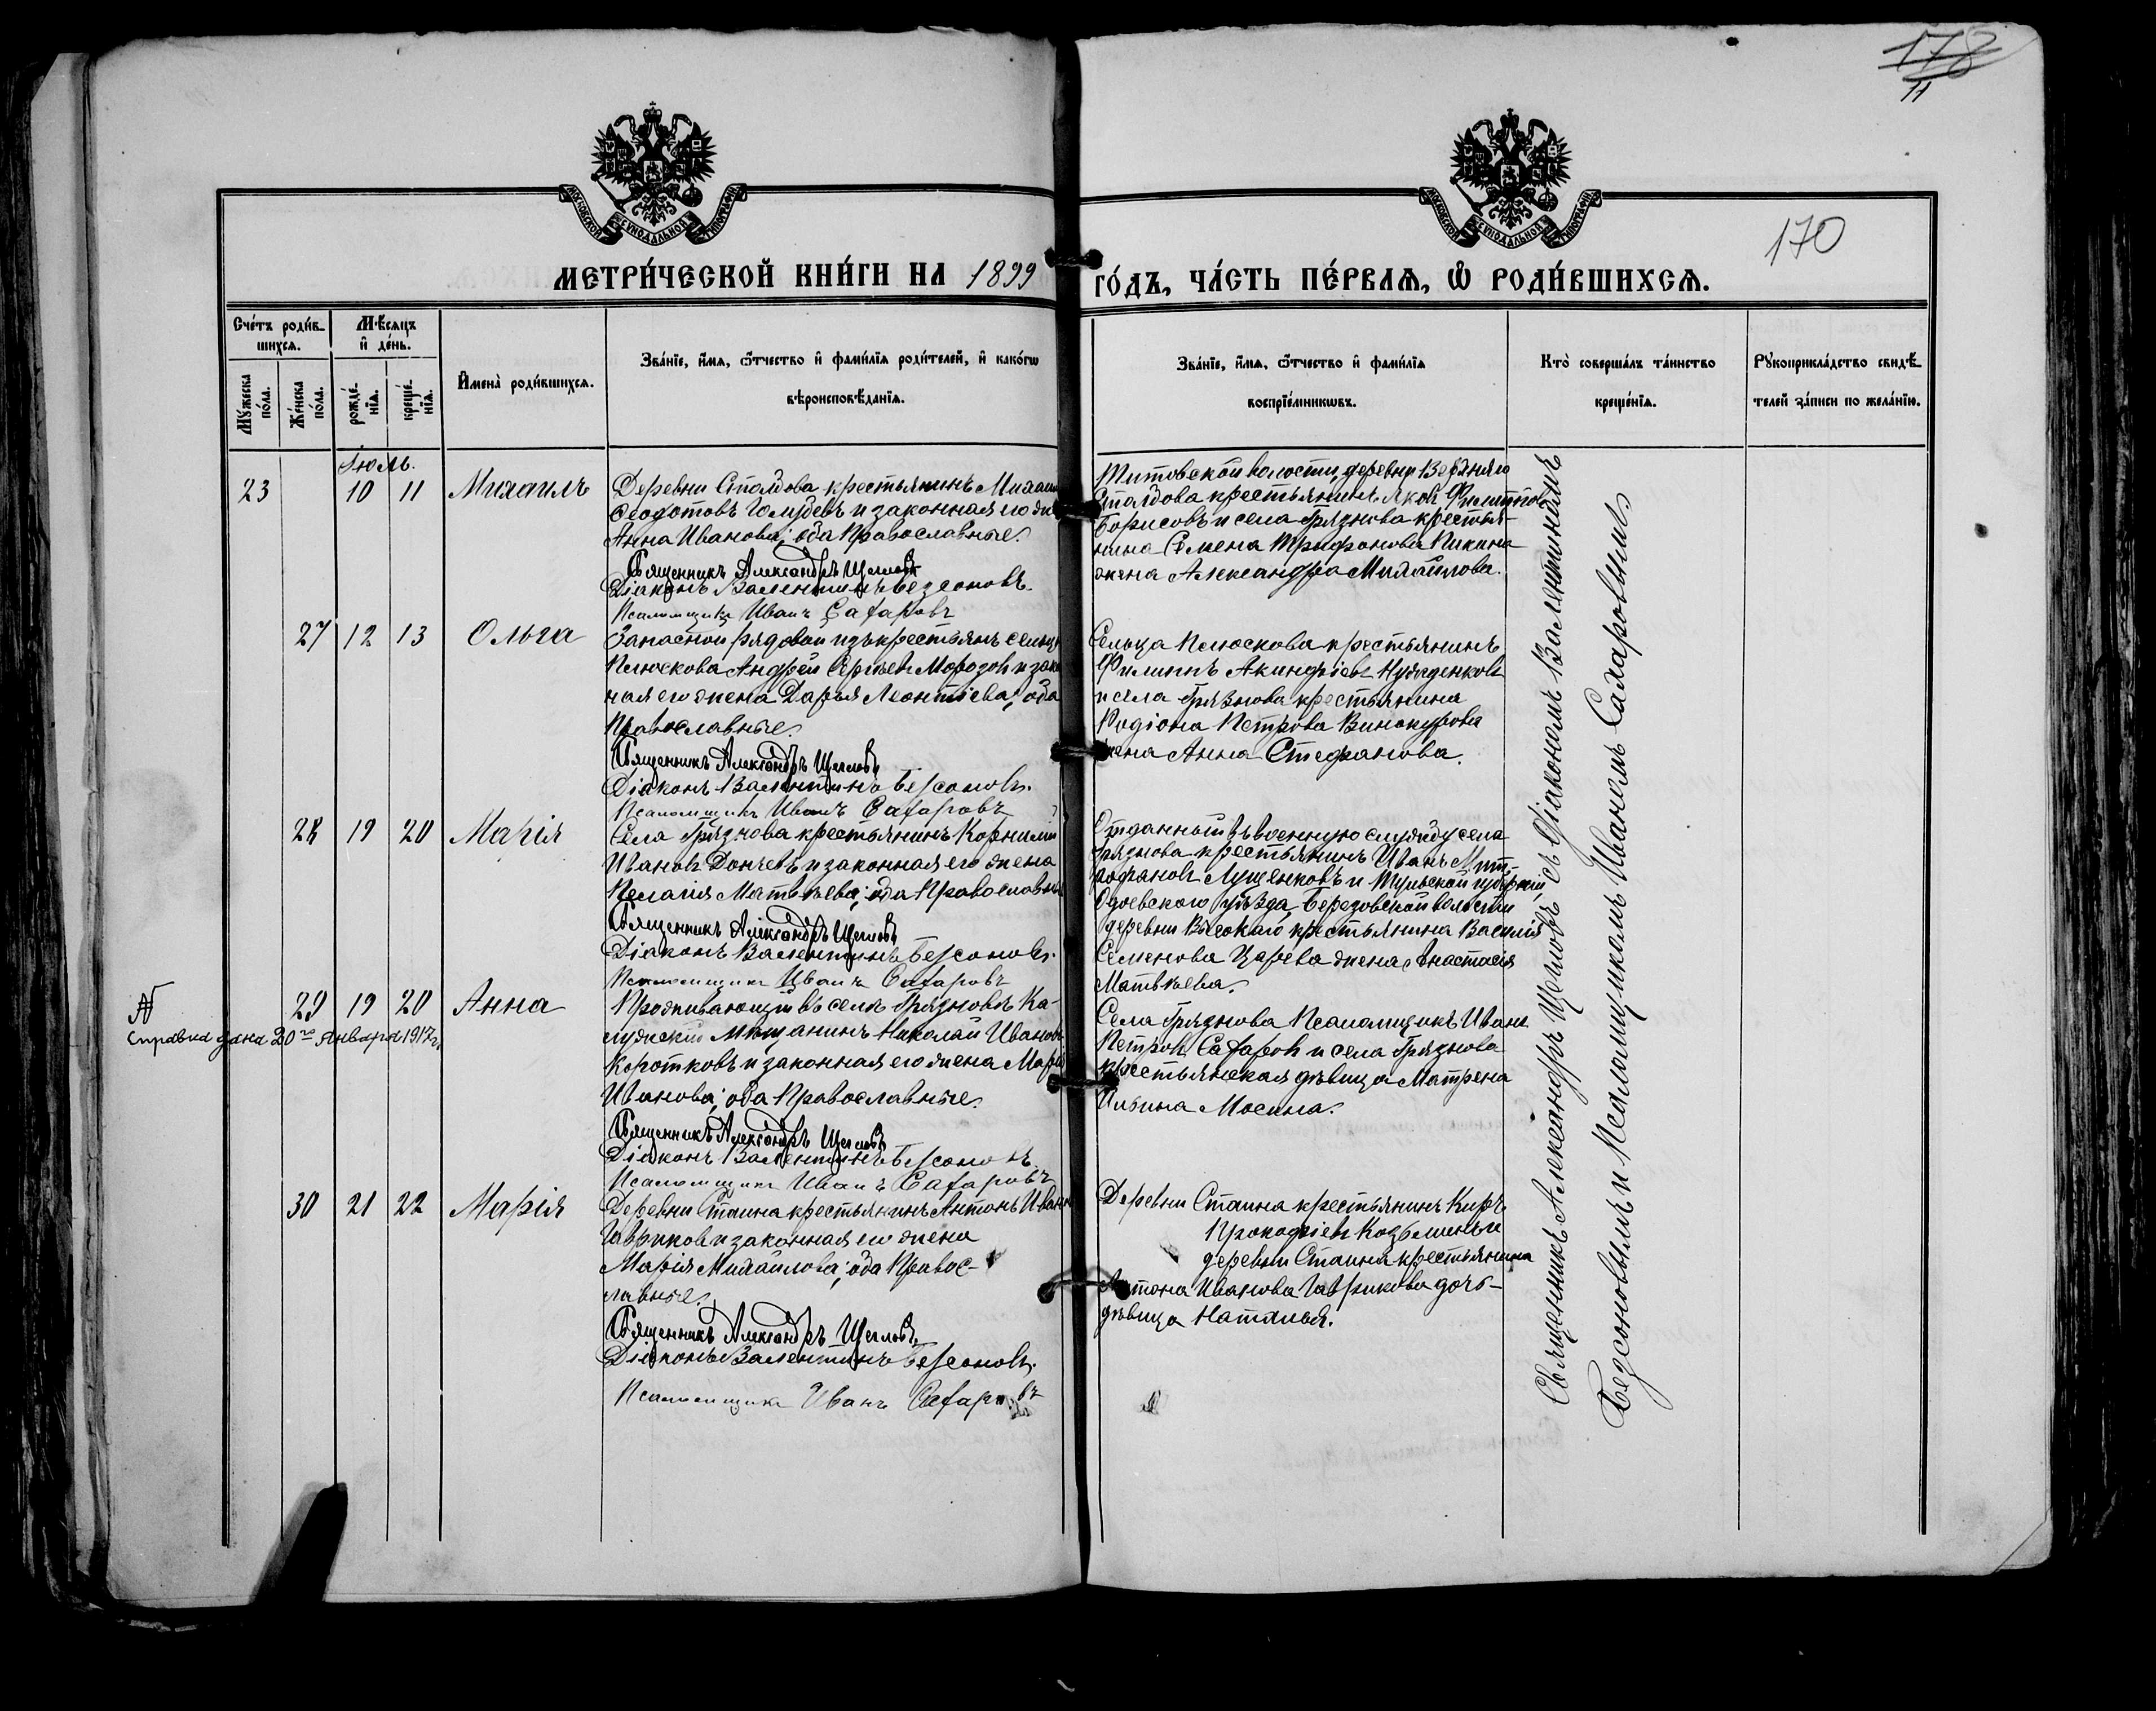 178
11
МОСКОВСКОЙ СѴНОДАЛЬНОЙ ТИПОГРАФІИ
МОСКОВСКОЙ СѴНОДАЛЬНОЙ ТИПОГРАФІИ
170
МЕТРИ́ЧЕСКОЙ КНИ́ГИ НА 1899 ГО́ДЪ, ЧА́СТЬ ПЕ́РВАѦ, Ѽ РОДИ́ВШИХСѦ.
Сче́тъ роди́в-
шихсѧ.
Мѣ́сѧцъ
и҆ де́нь.
Мꙋ́жеска
по́ла.
Же́нска
по́ла.
рожде́-
нїѧ.
креще́-
нїѧ.
И҆мена̀ роди́вшихсѧ.
Зва́нїе, и҆́мѧ, ѻ҆́тчество и҆ фами́лїѧ роди́телей, и҆ како́гѡ
вѣроисповѣ́данїѧ.
Зва́нїе, и҆́мѧ, ѻ҆́тчество и҆ фами́лїѧ
воспрїе́мникѡвъ.
Кто̀ соверша́лъ та́инство
креще́нїѧ.
Рꙋкоприкла́дство свидѣ́-
телей за́писи по жела́нїю.
Іюль.
23 10 11 Михаилъ
Деревни Столдова крестьянинъ Михаи
Ѳеодотовъ Голубевъ и законная его же
Анна Иванова; оба Православные.
Священникъ Александръ Щегловъ
Діаконъ Валентинъ Безсоновъ.
Псаломщикъ Иванъ Сахаровъ
Титовской волости, деревни Верхняго
Столдова крестьянинъ Яковъ Филиппов
Борисовъ и села Грязнова крестья-
нина Семена Трифонова Пикина
жена Александра Михайлова.
27 12 13 Ольга
Запасной рядовой изъ крестьянъ сельца
Плюскова Андрей Сергѣевъ Морозовъ и зако
ная его жена Дарья Леонтіева; оба
Православные.
Священникъ Александръ Щегловъ
Діаконъ Валентинъ Безсоновъ.
Псаломщикъ Иванъ Сахаровъ
Сельца Плюскова крестьянинъ
Филиппъ Акинфіевъ
и села Грязнова крестьянина
Родіона Петрова Винокурова
жена Анна Стефанова.
28 19 20 Марія
Села Грязнова крестьянинъ Корнилій
Ивановъ Дончевъ и законная его жена
Пелагія Матвѣева; оба Православные
Священникъ Александръ Щегловъ
Діаконъ Валентинъ Безсоновъ.
Псаломщикъ Иванъ Сахаровъ
Отданный въ военную службу села
Грязнова крестьянинъ Иванъ Мит-
рофановъ Лущенковъ и Тульской губерніи,
Одоевского уѣзда, Березовской волости
деревни Высокаго крестьянина Василія
Семенова Царева жена Анастасія
Матвѣева.
29 19 20 Анна
Справка дана 20го Января 1917 г.
Проживающій въ селѣ Грязновѣ Ка-
лужскій Мѣщанинъ Николай Иванов
Коротковъ и законная его жена Марія
Иванова; оба Православные.
Священникъ Александръ Щегловъ
Діаконъ Валентинъ Безсоновъ.
Псаломщикъ Иванъ Сахаровъ
Села Грязнова Псаломщикъ Иванъ
Петровъ Сахаровъ и села Грязнова
крестьянская дѣвица Матрена
Ильина Мосина.
30 21 22 Марія
Деревни Стаина крестьянинъ Антонъ Иванов
Гавриковъ и законная его жена
Марія Михайлова; оба Правос-
лавные.
Священникъ Александръ Щегловъ.
Діаконъ Валентинъ Безсоновъ.
Псаломщикъ Иванъ Сахаровъ
Деревни Стаина крестьянинъ Киръ
Прокофіевъ Козьминъ и
деревни Стаина крестьянина
Антона Иванова Гаврикова дочь-
дѣвица Наталья.
Священникъ Александръ Щегловъ съ Діакономъ Валентиномъ
Безсоновымъ и Псаломщикомъ Иваномъ Сахаровымъ